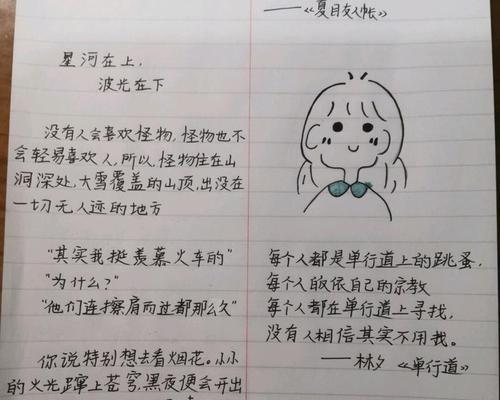 星河在上，
波光在下
没有人会喜欢怪物，怪物也不
会轻易喜欢人，所以，怪物住在山
洞深处，大雪覆盖的山顶，出没在
一切无人迹的地方
"其实我挺羡慕火车的"
"为什么？"
"他们连擦肩而过都那么久"
你说特别想去看烟花。小小
的火光蹿上苍穹，黑夜便会开出
——《夏目友人帐》
每个人都是单行道上的跳蚤，
每个人皈依自己的宗教
每个人都在单行道上寻找，
没有人相信其实不用找。
——林夕《单行道》